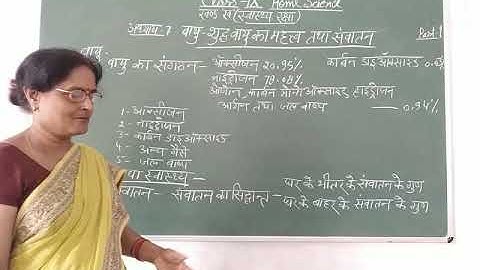 Class-IX Home Science
खण्ड ख (स्वास्थ्य रक्षा)
अध्याय 7 वायु-शुद्ध वायु का महत्व तथा संवातन Part-1
वायु-
वायु का संगठन - ऑक्सीजन 20.95% कार्बन डाइऑक्साइड
नाइट्रोजन 78.08%
कार्बन मोनो ऑक्साइड, हाइड्रोजन
तथा जल वाष्प 0.94%
1- ऑक्सीजन
2- नाइट्रोजन
3- कार्बन डाइऑक्साइड
4- अन्य गैसें
5- जल वाष्प
स्वास्थ्य -
संवातन का सिद्धान्त - घर के भीतर के संवातन के गुण
घर के बाहर के संवातन के गुण